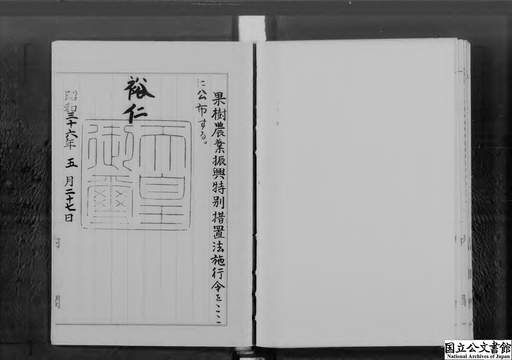 果樹農業振興特別措置法施行令をここ
に公布する。
裕仁
天皇
御璽
昭和三十六年五月二十七日
国立公文書館
National Archives of Japan